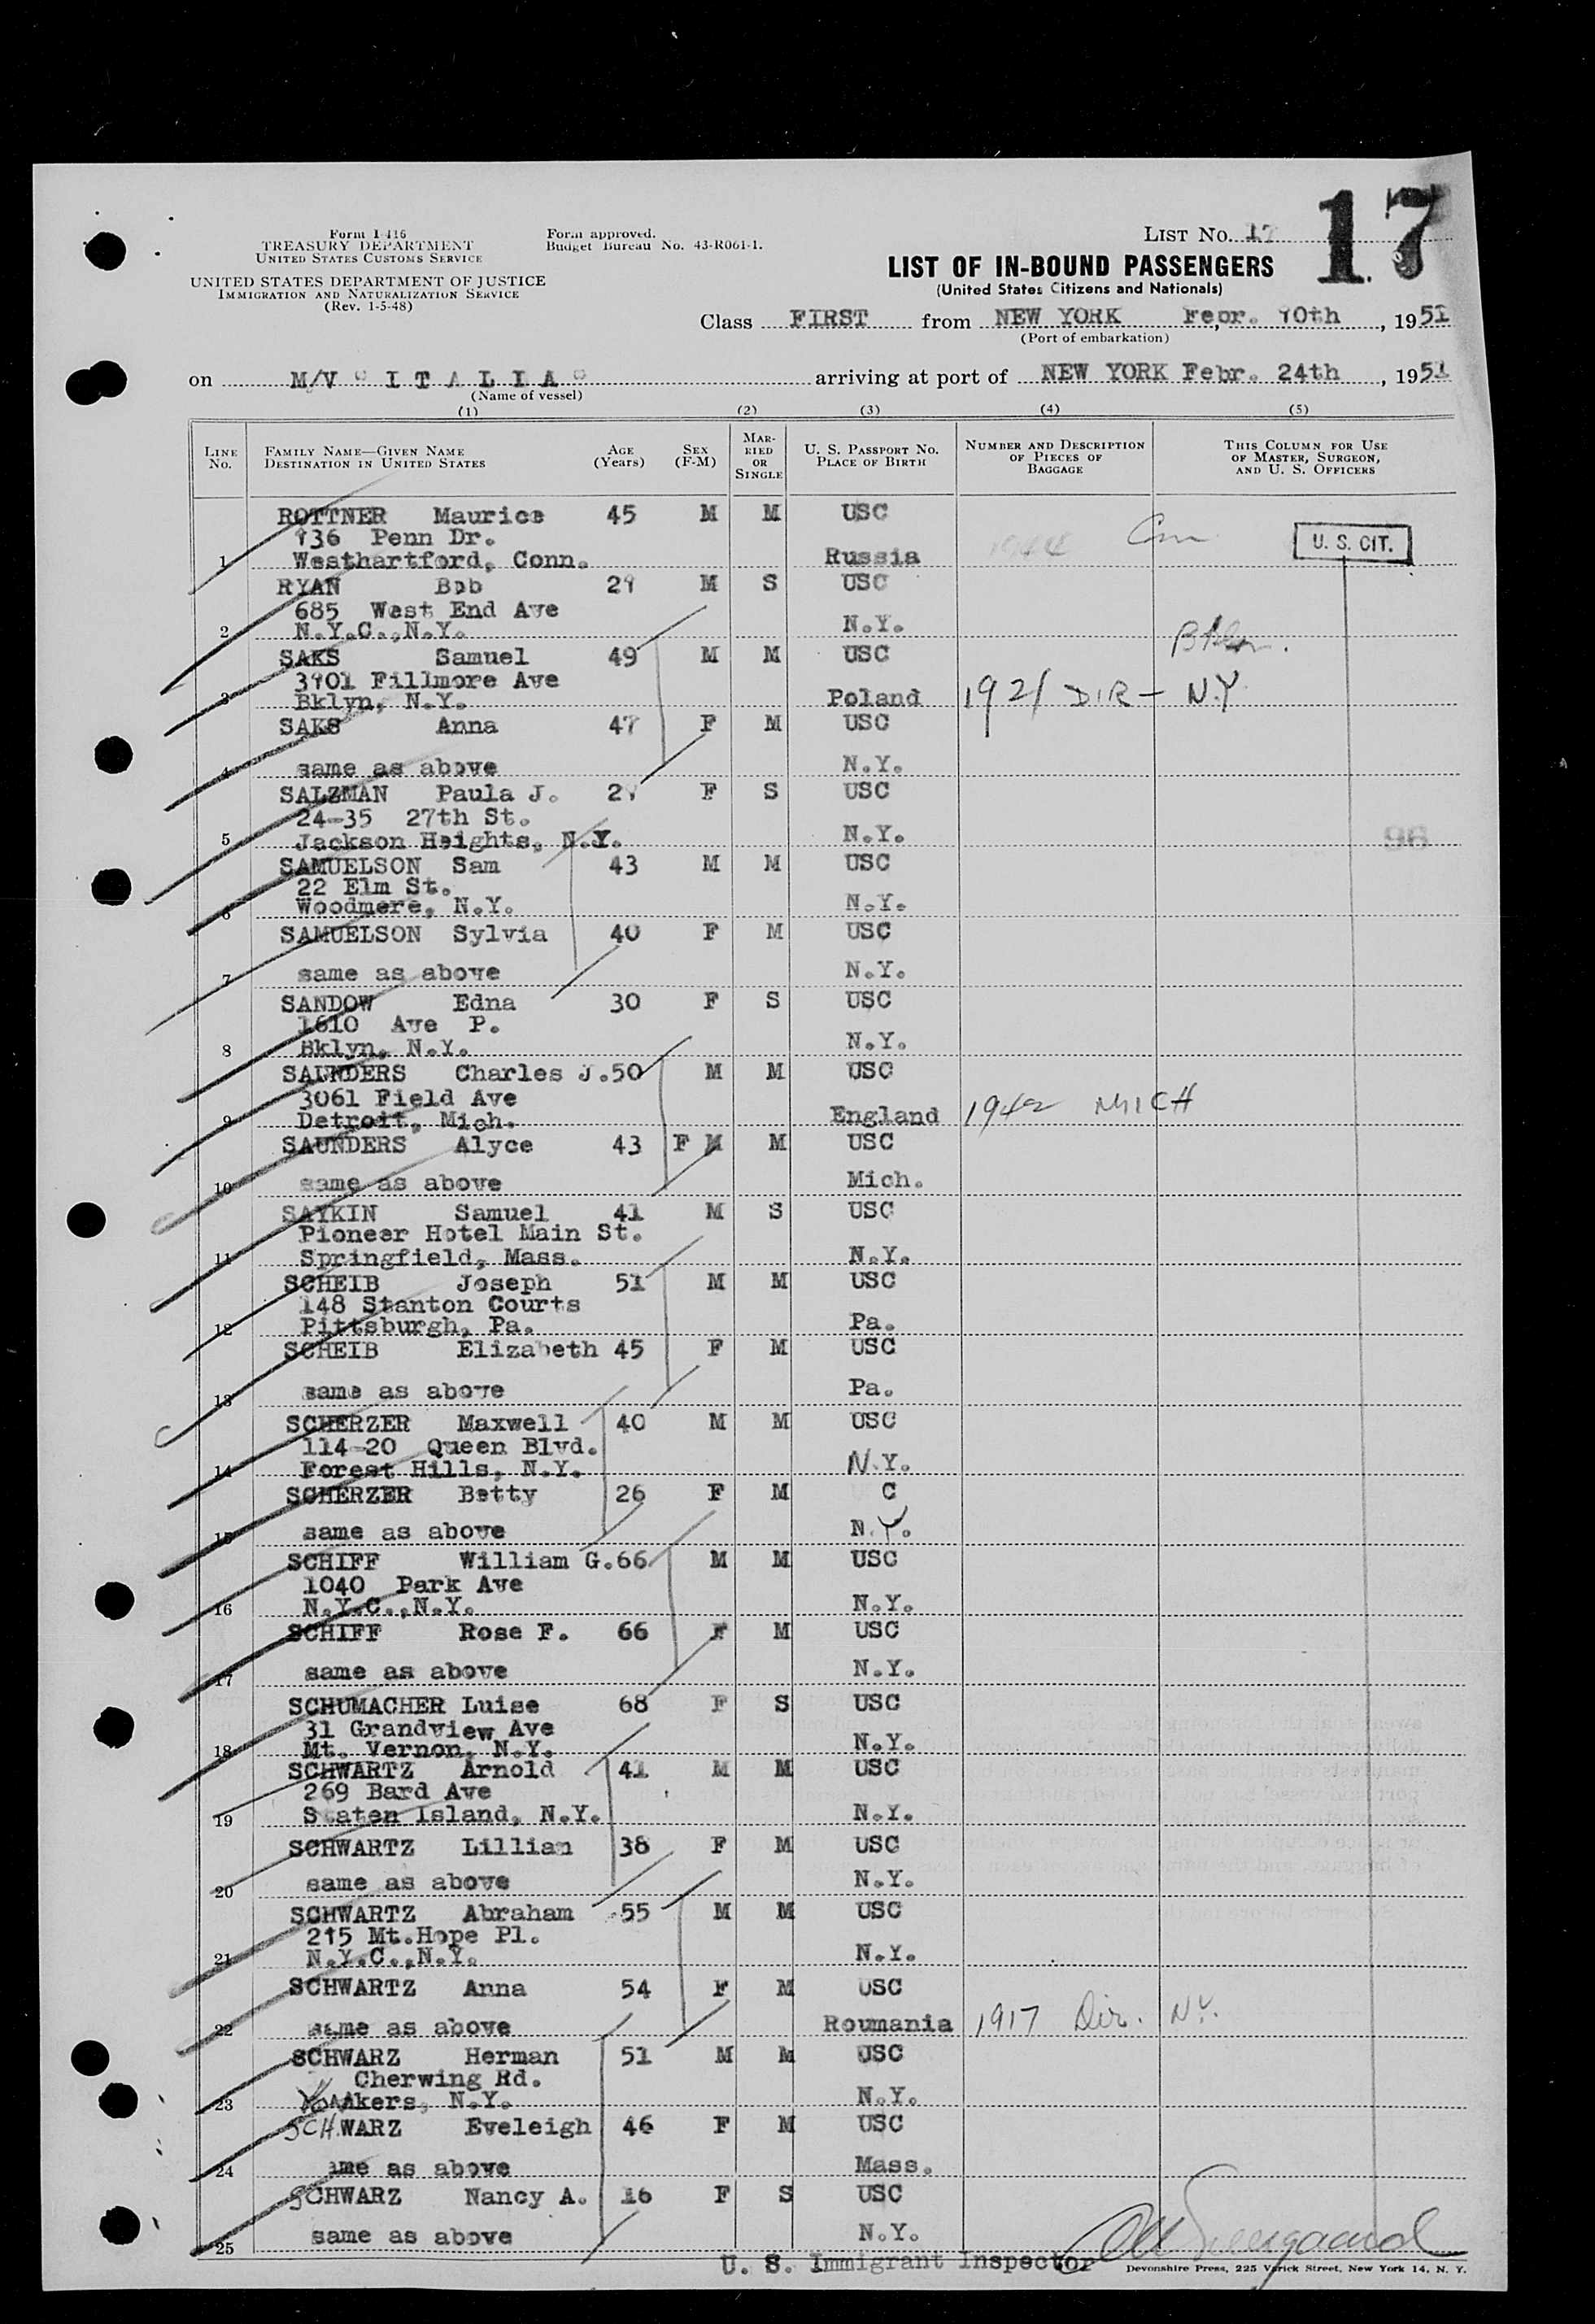 17
Form I-416
TREASURY DEPARTMENT
UNITED STATES CUSTOMS SERVICE
UNITED STATES DEPARTMENT OF JUSTICE
IMMIGRATION AND NATURALIZATION SERVICE
(Rev. 1-5-48)
Form approved.
Budget Bureau No. 43-R061-1.
LIST NO. 17
LIST OF IN-BOUND PASSENGERS
(United States Citizens and Nationals)
Class FIRST from NEW YORK Febr. 10th, 1951
(Port of embarkation)
on M/V " I T A L I A " arriving at port of NEW YORK Febr. 24th, 1951
(Name of vessel)
(1) (2) (3) (4) (5)
LINE NO. FAMILY NAME—GIVEN NAME DESTINATION IN UNITED STATES AGE (Years) SEX (F-M) MARRIED OR SINGLE U. S. PASSPORT NO. PLACE OF BIRTH NUMBER AND DESCRIPTION OF PIECES OF BAGGAGE THIS COLUMN FOR USE OF MASTER, SURGEON, AND U. S. OFFICERS
ROTTNER Maurice 45 M M USC
136 Penn Dr.
1 Westhartford, Conn. Russia 1944 U. S. CIT.
RYAN Bob 29 M S USC
685 West End Ave
2 N.Y.C.,N.Y. N.Y.
SAKS Samuel 49 M M USC
3901 Fillmore Ave
3 Bklyn, N.Y. Poland 1921 DIR - N.Y.
SAKS Anna 47 F M USC
4 same as above N.Y.
SALZMAN Paula J. F S USC
24-35 27th St.
5 Jackson Heights, N.Y. N.Y. 96
SAMUELSON Sam 43 M M USC
22 Elm St.
6 Woodmere, N.Y. N.Y.
SAMUELSON Sylvia 40 F M USC
7 same as above N.Y.
SANDOW Edna 30 F S USC
1610 Ave P.
8 Bklyn, N.Y. N.Y.
SAUNDERS Charles J. 50 M M USC
3061 Field Ave
9 Detroit, Mich. England 1942 MICH
SAUNDERS Alyce 43 F M M USC
10 same as above Mich.
SAYKIN Samuel 41 M S USC
Pioneer Hotel Main St.
11 Springfield, Mass. N.Y.
SCHEIB Joseph 51 M M USC
148 Stanton Courts
12 Pittsburgh, Pa. Pa.
SCHEIB Elizabeth 45 F M USC
13 same as above Pa.
SCHERZER Maxwell 40 M M USC
114-20 Queen Blvd.
14 Forest Hills, N.Y. N.Y.
SCHERZER Betty 26 F M C
15 same as above N.Y.
SCHIFF William G. 66 M M USC
1040 Park Ave
16 N.Y.C.,N.Y. N.Y.
SCHIFF Rose F. 66 F M USC
17 same as above N.Y.
SCHUMACHER Luise 68 F S USC
31 Grandview Ave
18 Mt. Vernon, N.Y. N.Y.
SCHWARTZ Arnold 41 M M USC
269 Bard Ave
19 Staten Island, N.Y. N.Y.
SCHWARTZ Lillian 38 F M USC
20 same as above N.Y.
SCHWARTZ Abraham 55 M M USC
215 Mt.Hope Pl.
21 N.Y.C.,N.Y. N.Y.
SCHWARTZ Anna 54 F M USC
22 same as above Roumania 1917 Dir. N.Y.
SCHWARZ Herman 51 M M USC
Cherwing Rd.
23 Yonkers, N.Y. N.Y.
SCHWARZ Eveleigh 46 F M USC
24 ame as above Mass.
SCHWARZ Nancy A. 16 F S USC
25 same as above N.Y.
U. S. Immigrant Inspector
Devonshire Press, 225 Varick Street, New York 14, N. Y.